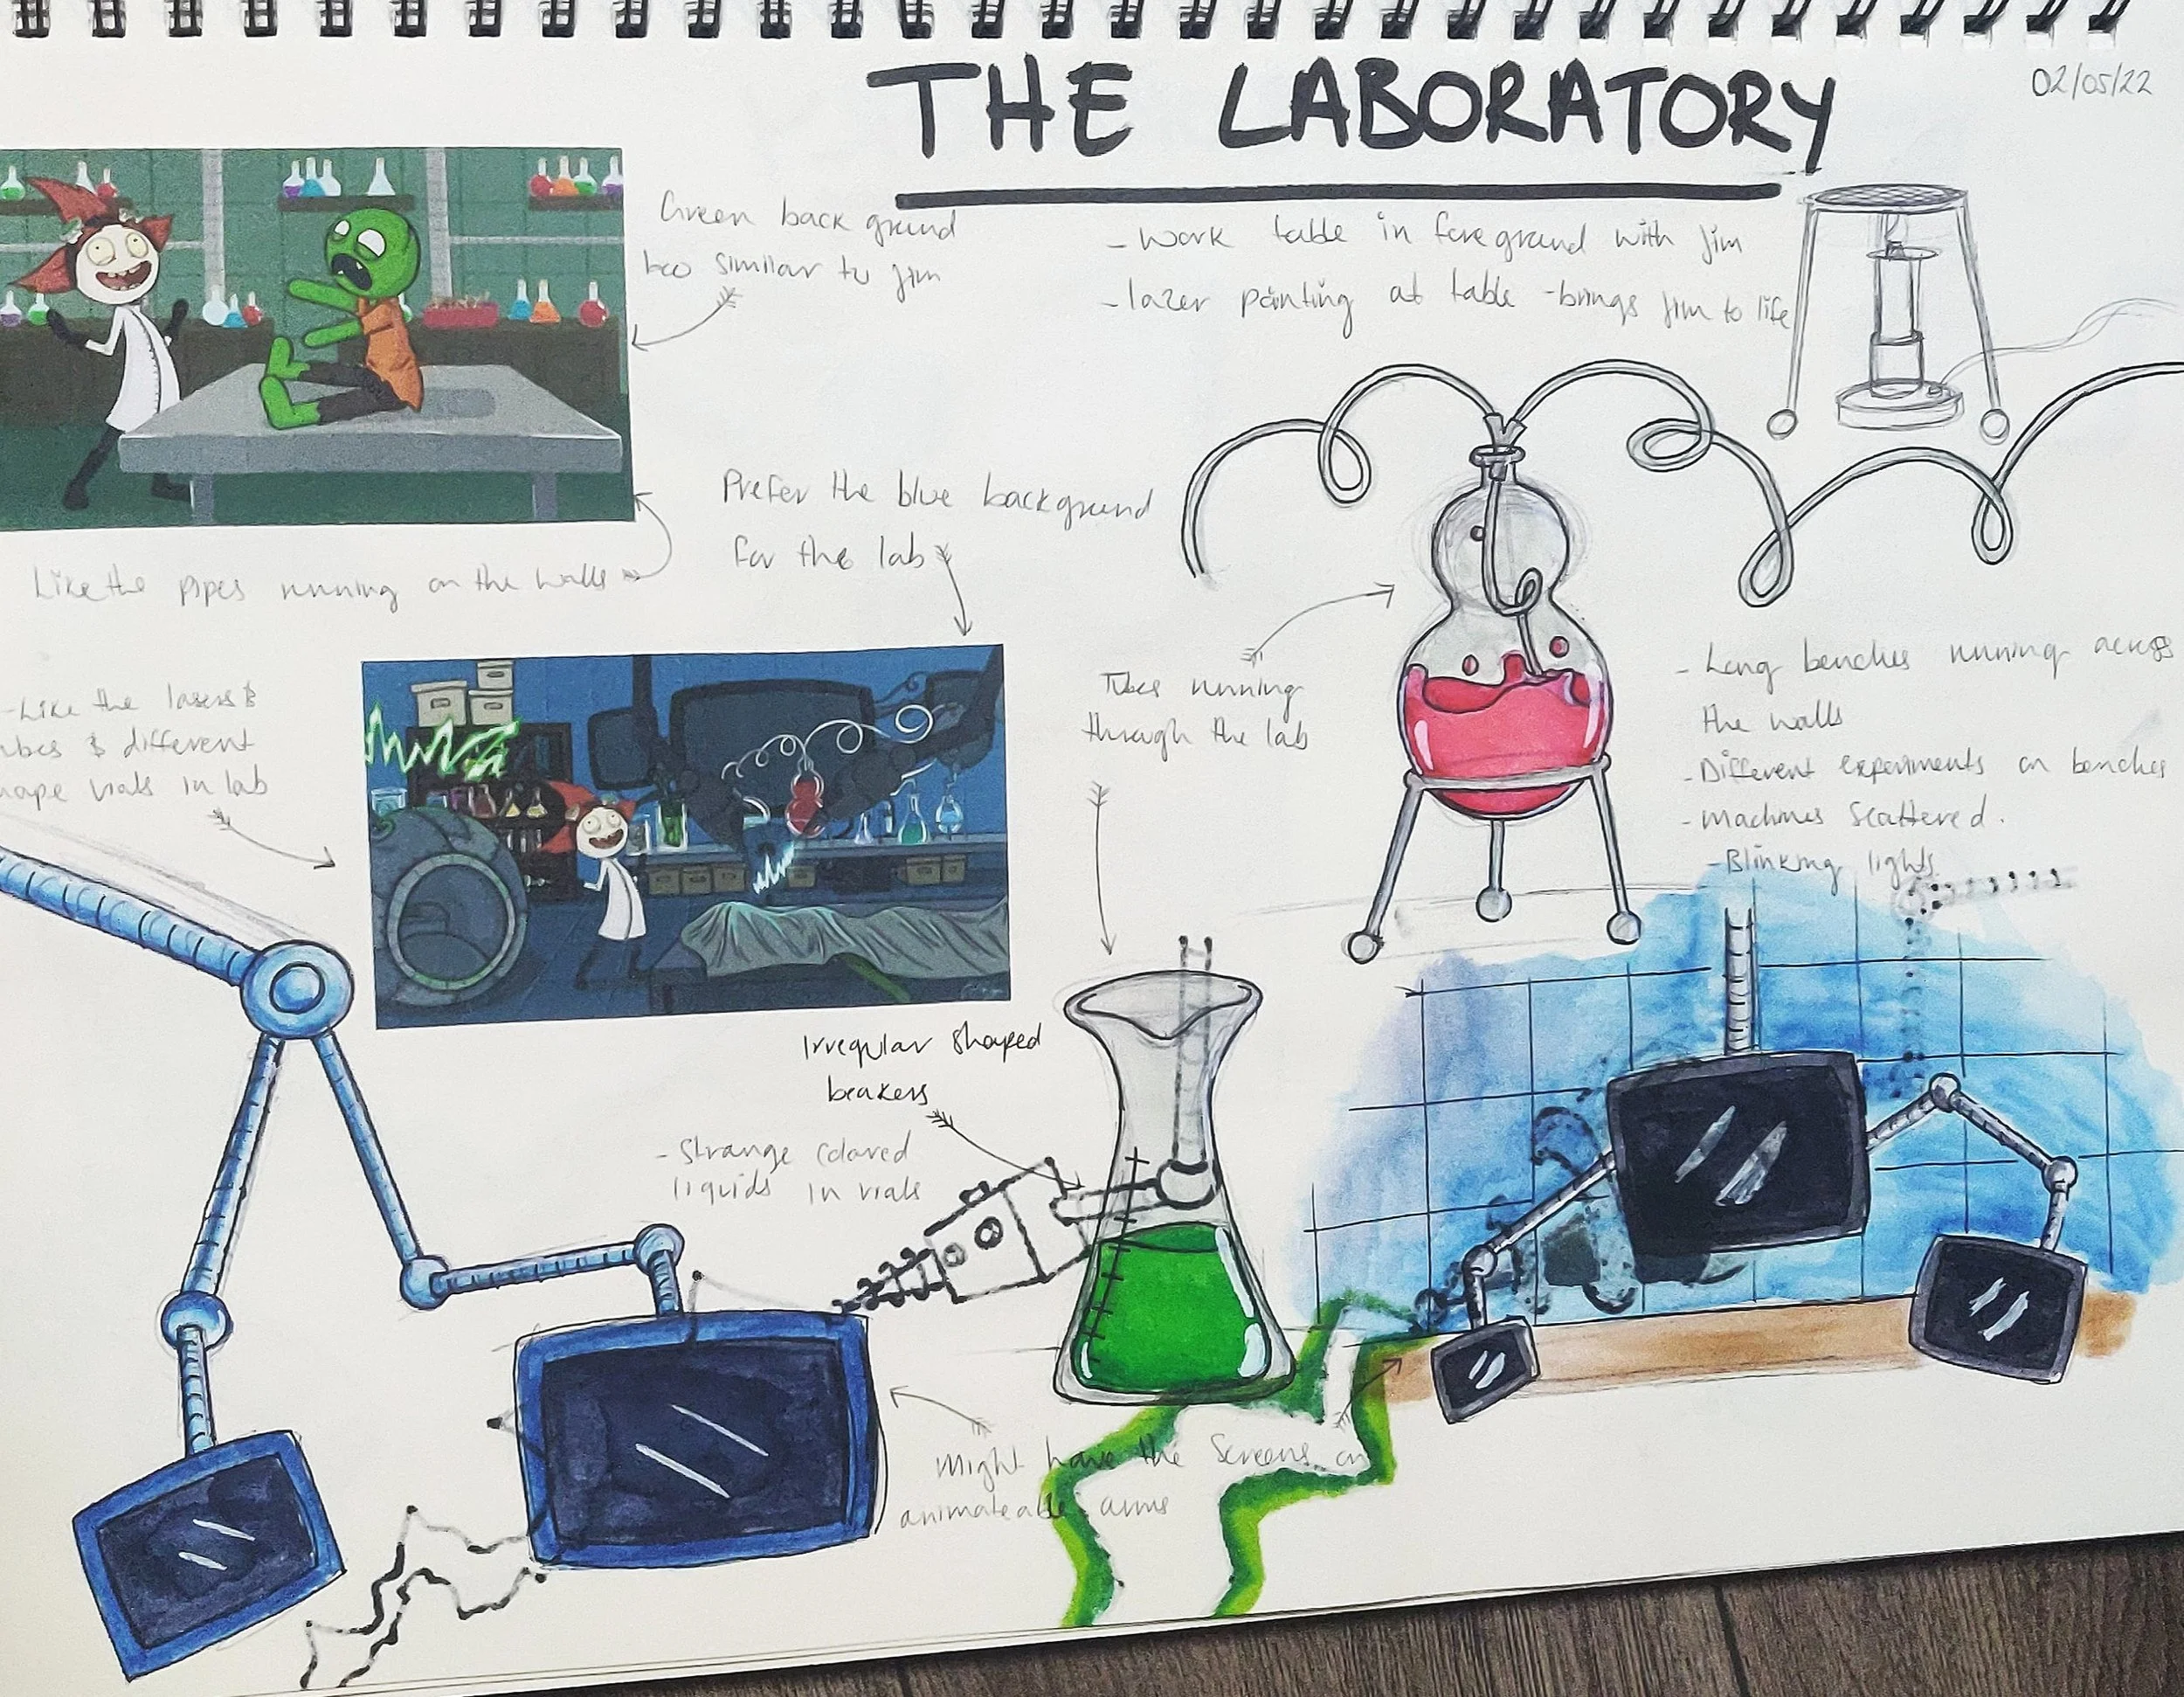 THE LABORATORY
02/05/22
Green back ground
too similar to Jim
- Work table in foreground with Jim
- lazer pointing at table - brings Jim to life
Like the pipes running on the walls
Prefer the blue background
for the lab
- Like the lasers &
& different
vials in lab
Tubes running
through the lab
- Long benches running across
the walls
- Different experiments on benches
- Machines Scattered.
- Blinking lights
Irregular Shaped
beakers
- Strange Colored
liquids in vials
Might have the Screens on
animateable arms